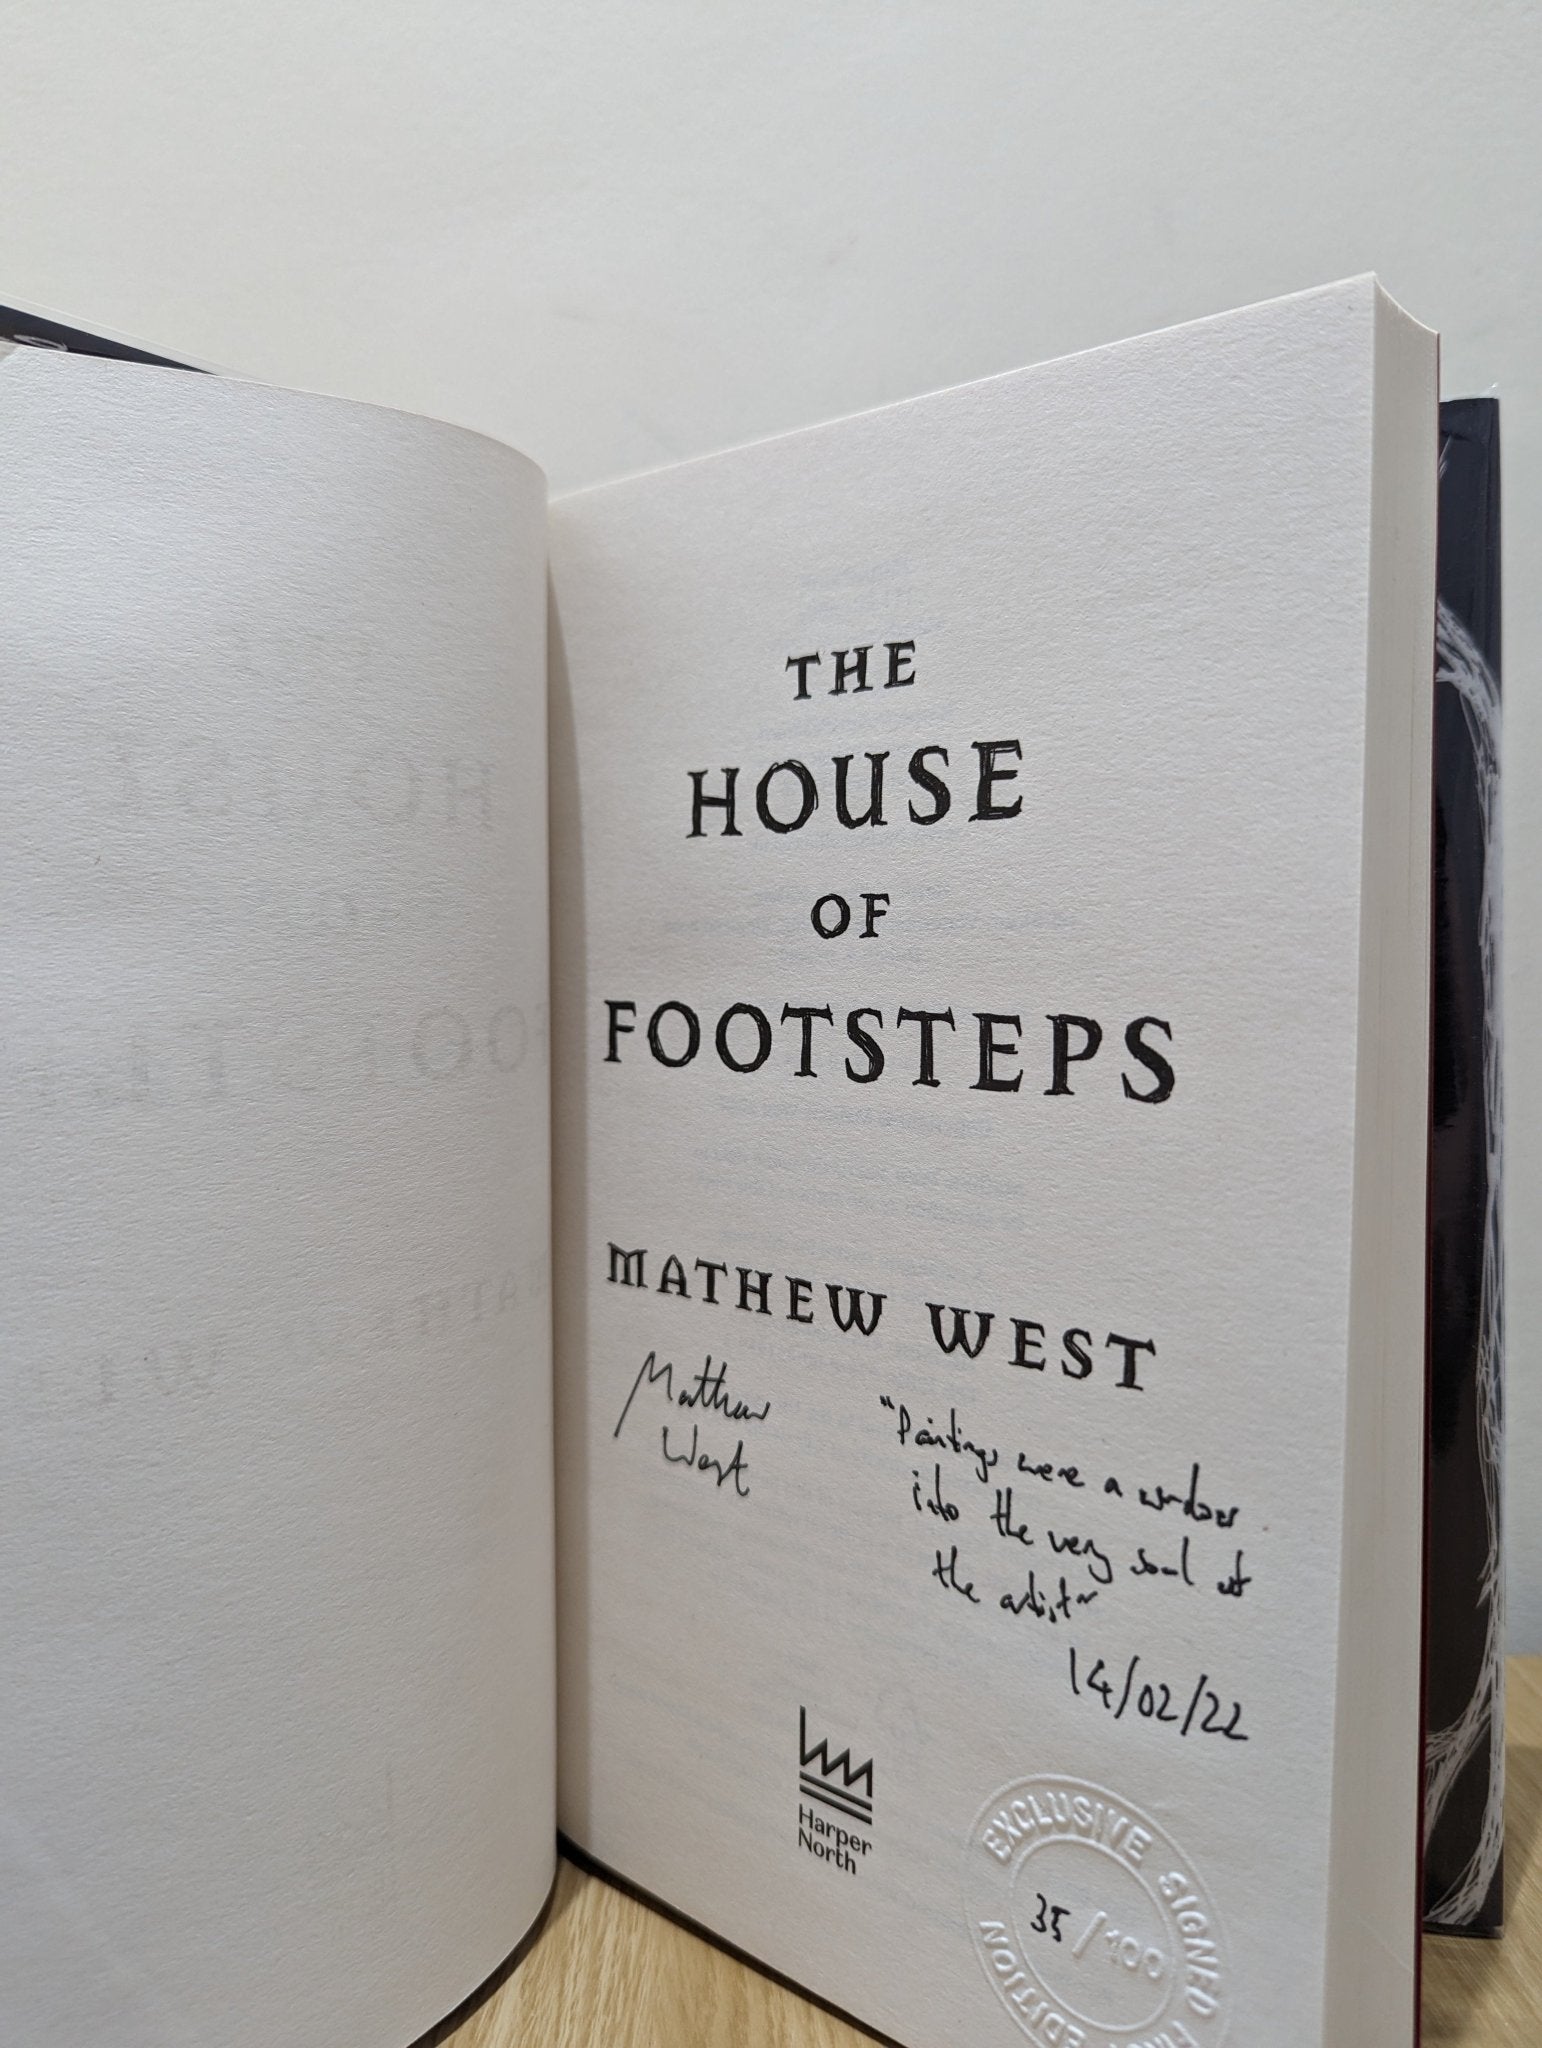 THE
HOUSE
OF
FOOTSTEPS
MATHEW WEST
Mathew
West
"Paintings were a window
into the very soul of
the artist"
14/02/22
Harper
North
EXCLUSIVE SIGNED FIRST EDITION
35/100